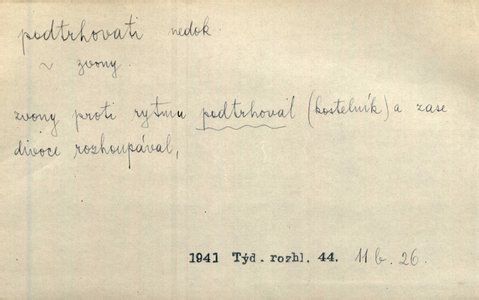 podtrhovati nedok.
~ zvony.
zvony proti rytmu podtrhoval (kostelník) a zase
divoce rozhoupával,
1941 Týd. rozhl. 44. 11 b. 26.